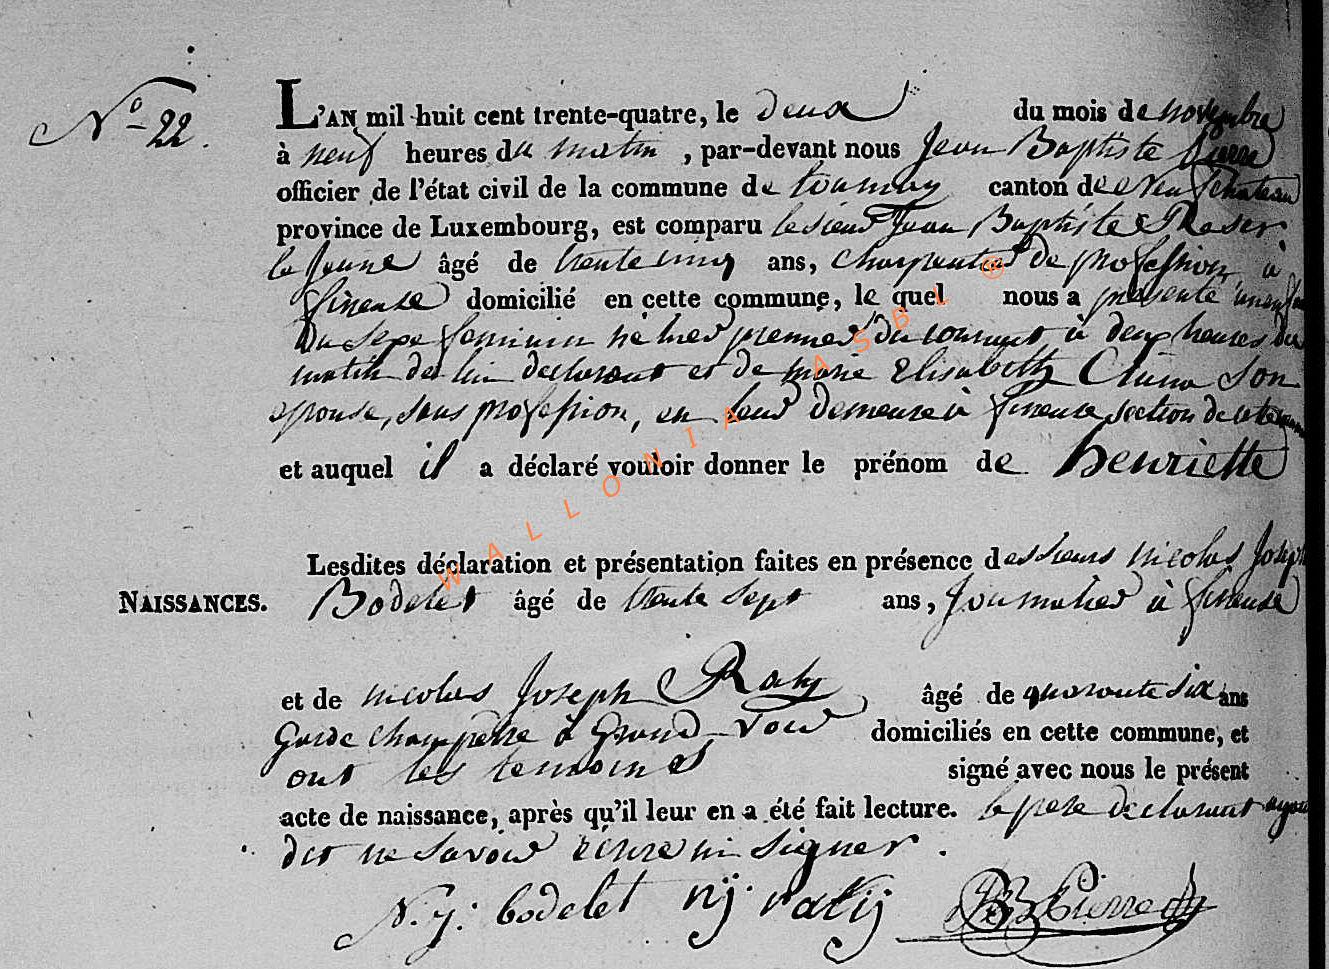 N.° 22.
L'AN mil huit cent trente-quatre, le deux du mois de novembre
à neuf heures du matin, par-devant nous Jean Baptiste Pierre
officier de l'état civil de la commune de tournay canton de neufchateau
province de Luxembourg, est comparu le sieur Jean Baptiste Raser
le Jeune âgé de trente cinq ans, charpentier de profession à
fineuse domicilié en cette commune, le quel nous a présenté un enfant
du sexe feminin né hier premier du courant à deux heures du
matin de lui declarant et de marie Elisabeth son
epouse, sans profession, en leur demeure à fineuse section de cette
et auquel il a déclaré vouloir donner le prénom de henriette
Lesdites déclaration et présentation faites en présence des sieurs nicolas Joseph
NAISSANCES. Bodelet âgé de trente sept ans, Journalier à fineuse
et de nicolas Joseph Raty âgé de quarante six ans
Garde champetre à Grand-voir domiciliés en cette commune, et
ont les temoins signé avec nous le présent
acte de naissance, après qu'il leur en a été fait lecture. le pere declarant ayant
dit ne savoir écrire ni signer.
N. j. bodelet nj. ratij JB Pierre
WALLONIA ASBL ®